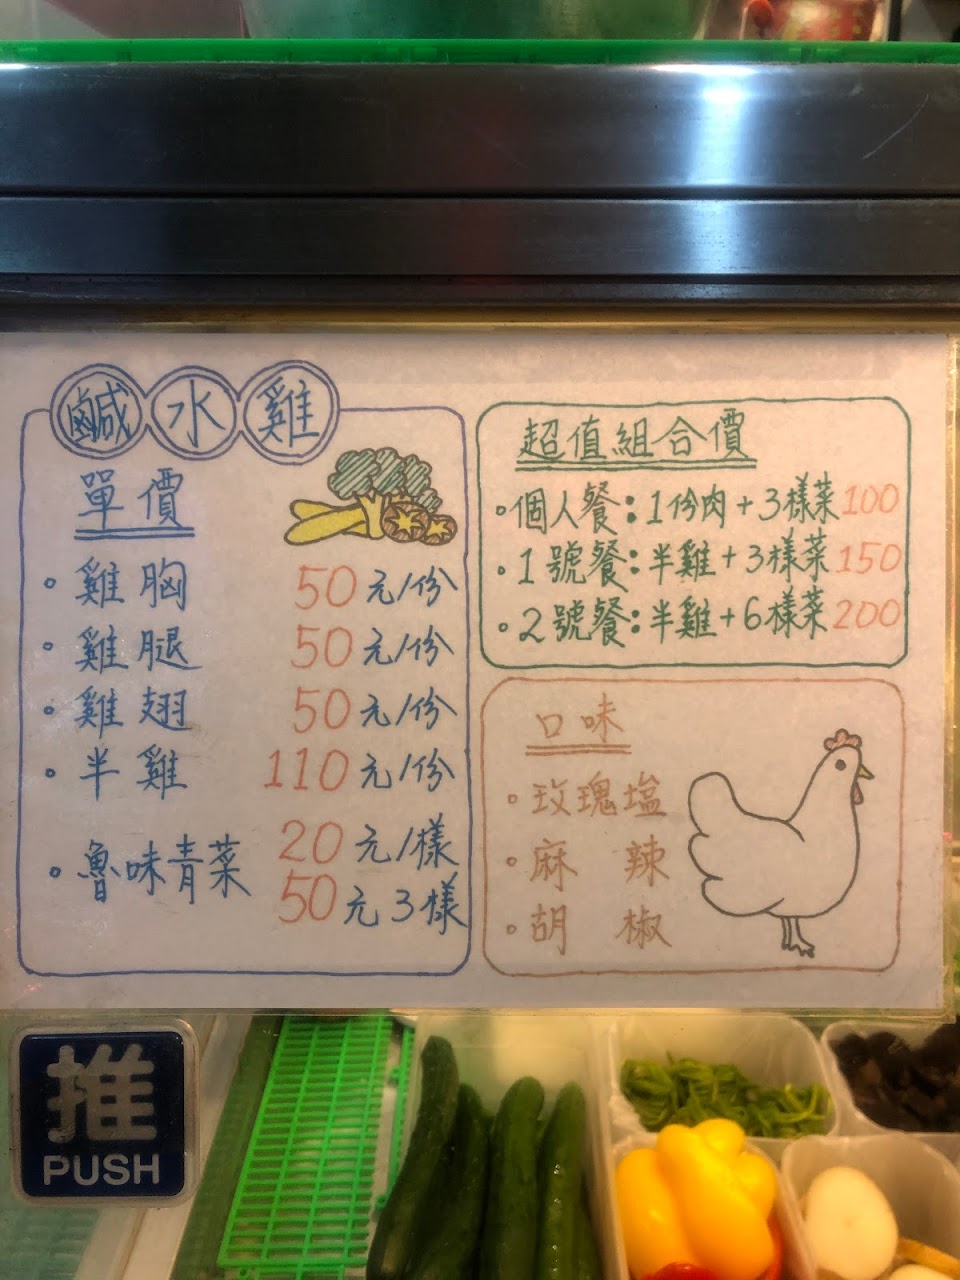 鹹水雞
單價
・雞胸 50元/份
・雞腿 50元/份
・雞翅 50元/份
・半雞 110元/份
・魯味青菜 20元/樣
50元3樣
超值組合價
・個人餐:1份肉+3樣菜100
・1號餐:半雞+3樣菜150
・2號餐:半雞+6樣菜200
口味
・玫瑰塩
・麻辣
・胡椒
推
PUSH